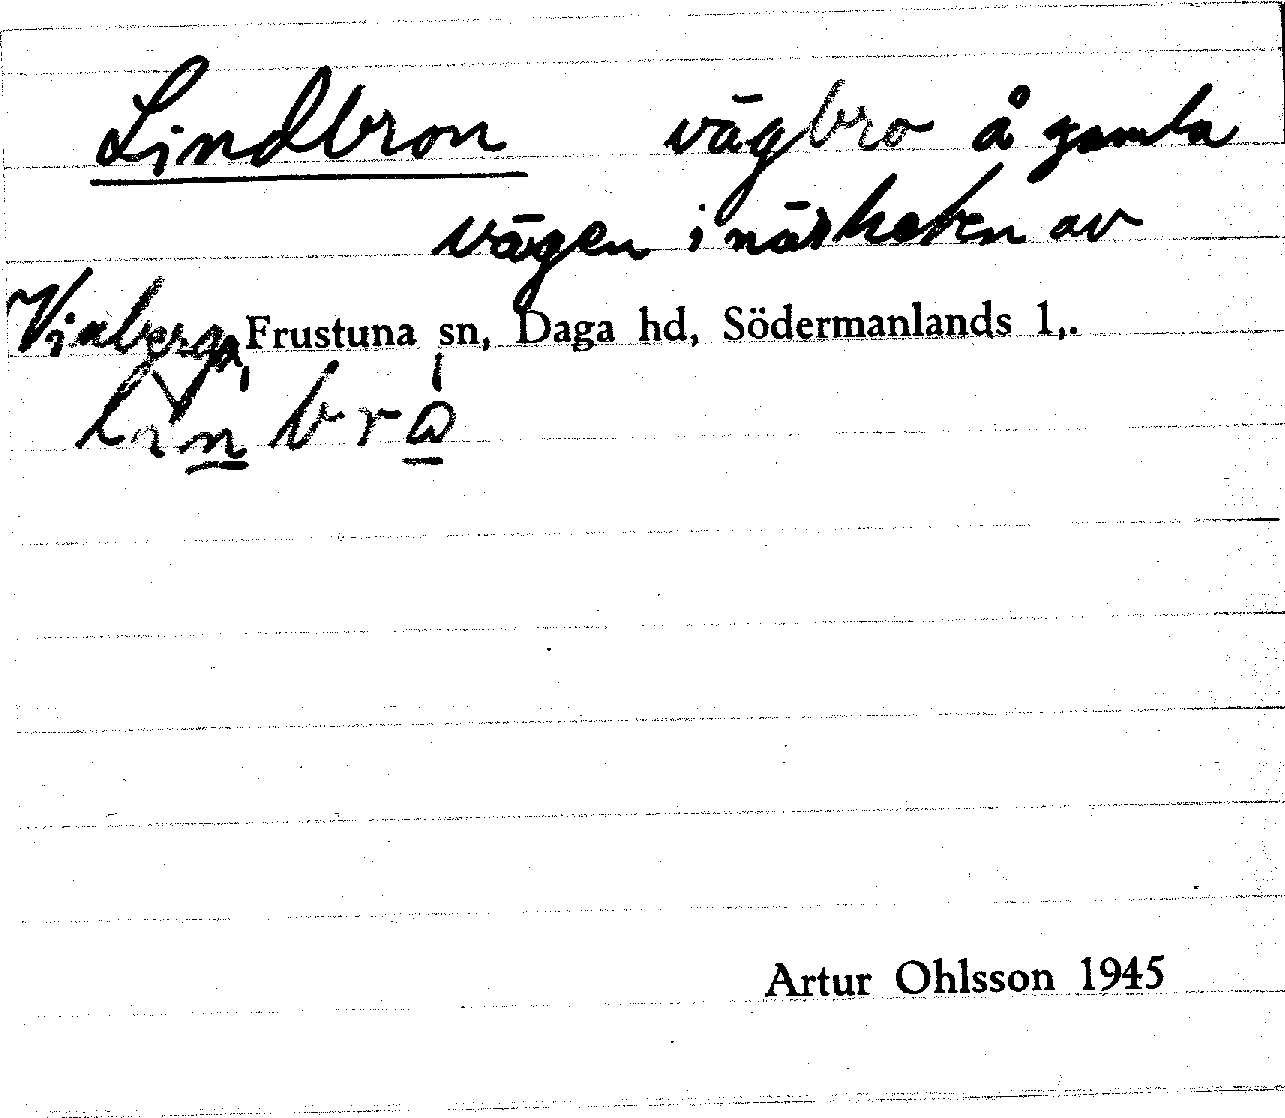 Lindbron vägbro å gamla
vägen i närheten av
Vinberga, Frustuna sn, Daga hd, Södermanlands l,.
Artur Ohlsson 1945